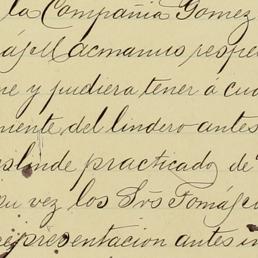 la Compañia Gomez
ás Macmanus respe
e y pudiera tener a cu
mente del lindero antes
eslinde practicado de
su vez los Srs Tomás
representacion antes in